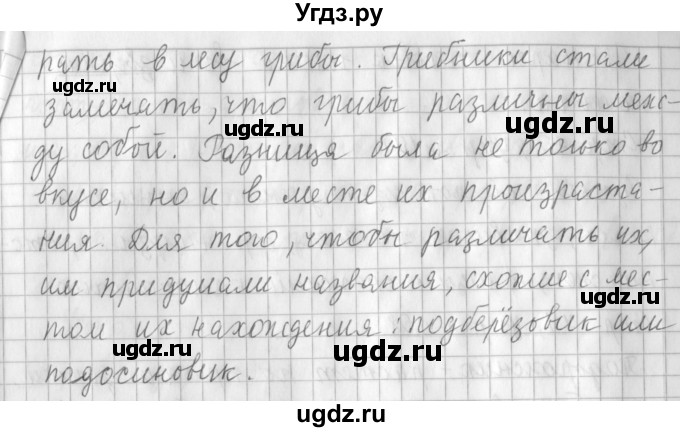 Угдз.ру
рать в лесу грибы. Грибники стали
замечать, что грибы различны меж-
ugdz.ru
ду собой. Разница была не только во
ugdz.ru
вкусе, но и в месте их произраста-
ния. Для того, чтобы различать их,
им придумали названия, схожие с мес-
ugdz.ru
том их нахождения: подберёзовик или
ugdz.ru
ugdz.ru
подосиновик.
ugdz.ru